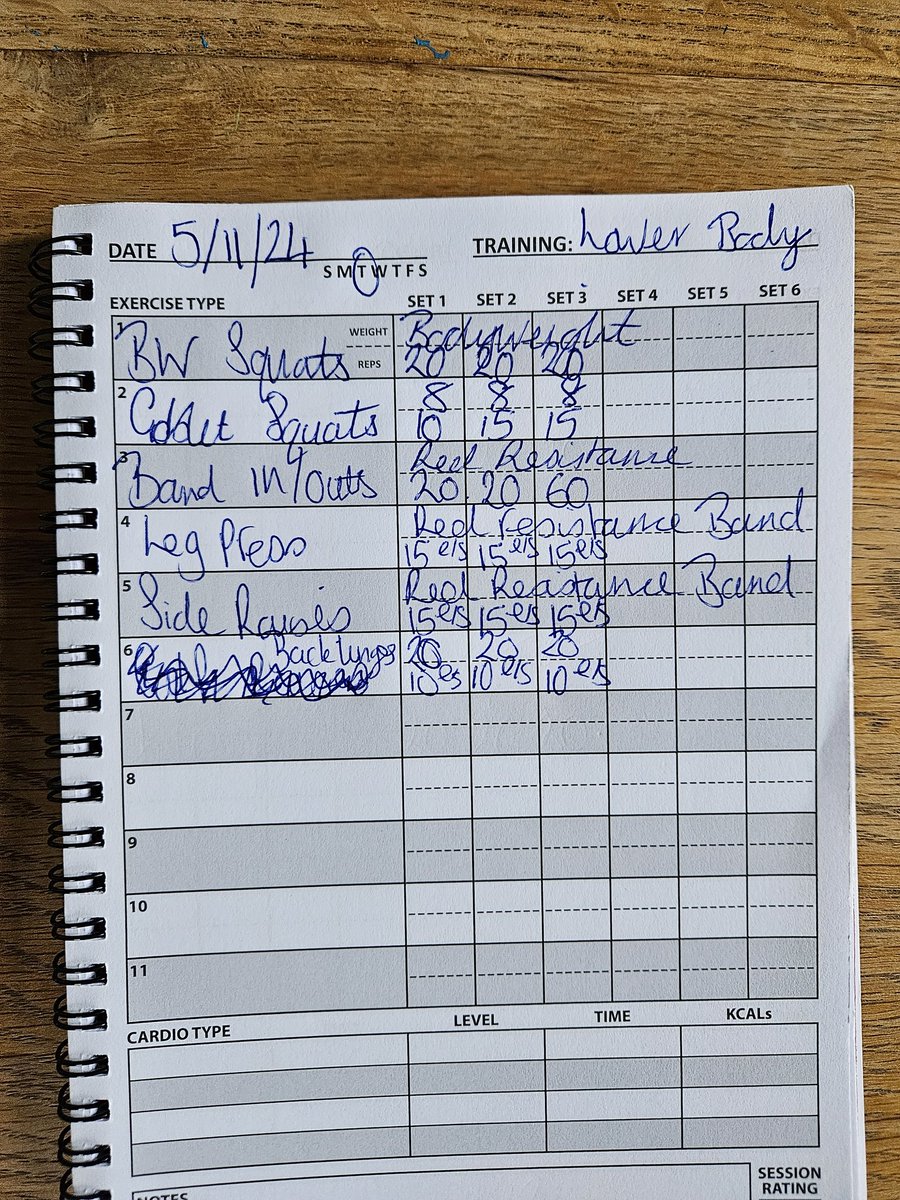 DATE 5/11/24 TRAINING: Lower Body
S M T W T F S
EXERCISE TYPE SET 1 SET 2 SET 3 SET 4 SET 5 SET 6
1 BW Squats WEIGHT Bodyweight
REPS 20 20 20
2 Goblet Squats 8 8 8
10 15 15
3 Band in/outs Red Resistance
20 20 60
4 Leg Press Red resistance Band
15 e/s 15 e/s 15 e/s
5 Side Raises Red Resistance Band
15 e/s 15 e/s 15 e/s
6 Back lunges 20 20 20
10 es 10 e/s 10 e/s
7
8
9
10
11
CARDIO TYPE LEVEL TIME KCALs
NOTES SESSION
RATING